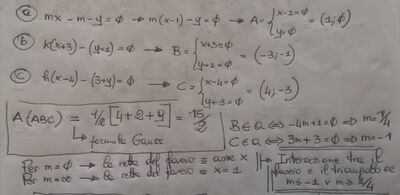 (a) mx - m - y = ∅ → m(x-1) - y = ∅ → A = { x-1=∅ y=∅ = (1; ∅)
(b) k(x+3) - (y+1) = ∅ → B = { x+3=∅ y+1=∅ = (-3; -1)
(c) h(x-4) - (3+y) = ∅ → C = { x-4=∅ y+3=∅ = (4; -3)
A(ABC) = 1/2 [4+2+9] = 15/2
→ formula Gauss
B ∈ a ⟺ -4m+1=∅ ⟹ m=1/4
C ∈ a ⟺ 3m+3=∅ ⟹ m=-1
Per m=∅ → la retta del fascio ≡ asse x
Per m=∞ → la retta del fascio ≡ x=1
Intersezione tra il
fascio e il triangolo se
m ≤ -1 ∨ m ≥ 1/4